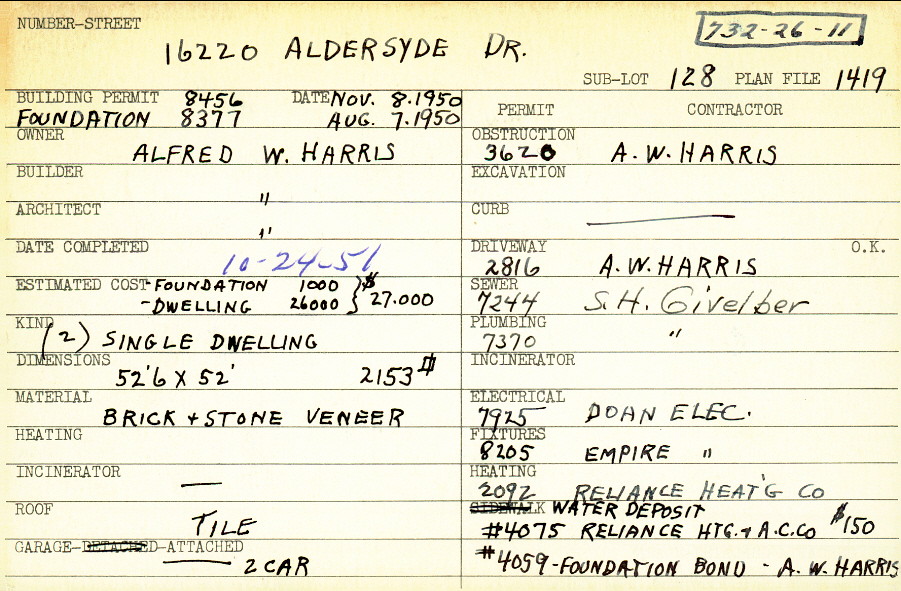 NUMBER-STREET
732-26-11
16220 ALDERSYDE DR.
SUB-LOT 128 PLAN FILE 1419
BUILDING PERMIT 8456 DATE NOV. 8.1950
FOUNDATION 8377 AUG. 7.1950
OWNER
ALFRED W. HARRIS
BUILDER
"
ARCHITECT
"
DATE COMPLETED
10-24-51
ESTIMATED COST-FOUNDATION 1000 } $
-DWELLING 26000 } 27.000
KIND
(2) SINGLE DWELLING
DIMENSIONS
52'6 X 52' 2153#
MATERIAL
BRICK + STONE VENEER
HEATING
INCINERATOR
—
ROOF
TILE
GARAGE-DETACHED-ATTACHED
2 CAR
PERMIT CONTRACTOR
OBSTRUCTION
3620 A.W.HARRIS
EXCAVATION
CURB
—
DRIVEWAY O.K.
2816 A.W.HARRIS
SEWER
7244 S.H. Givelber
PLUMBING
7370 "
INCINERATOR
ELECTRICAL
7925 DOAN ELEC.
FIXTURES
8205 EMPIRE "
HEATING
2092 RELIANCE HEAT'G CO
SIDEWALK WATER DEPOSIT
#4075 RELIANCE HTG.+ A.C.CO $150
#4059-FOUNDATION BOND - A.W. HARRIS